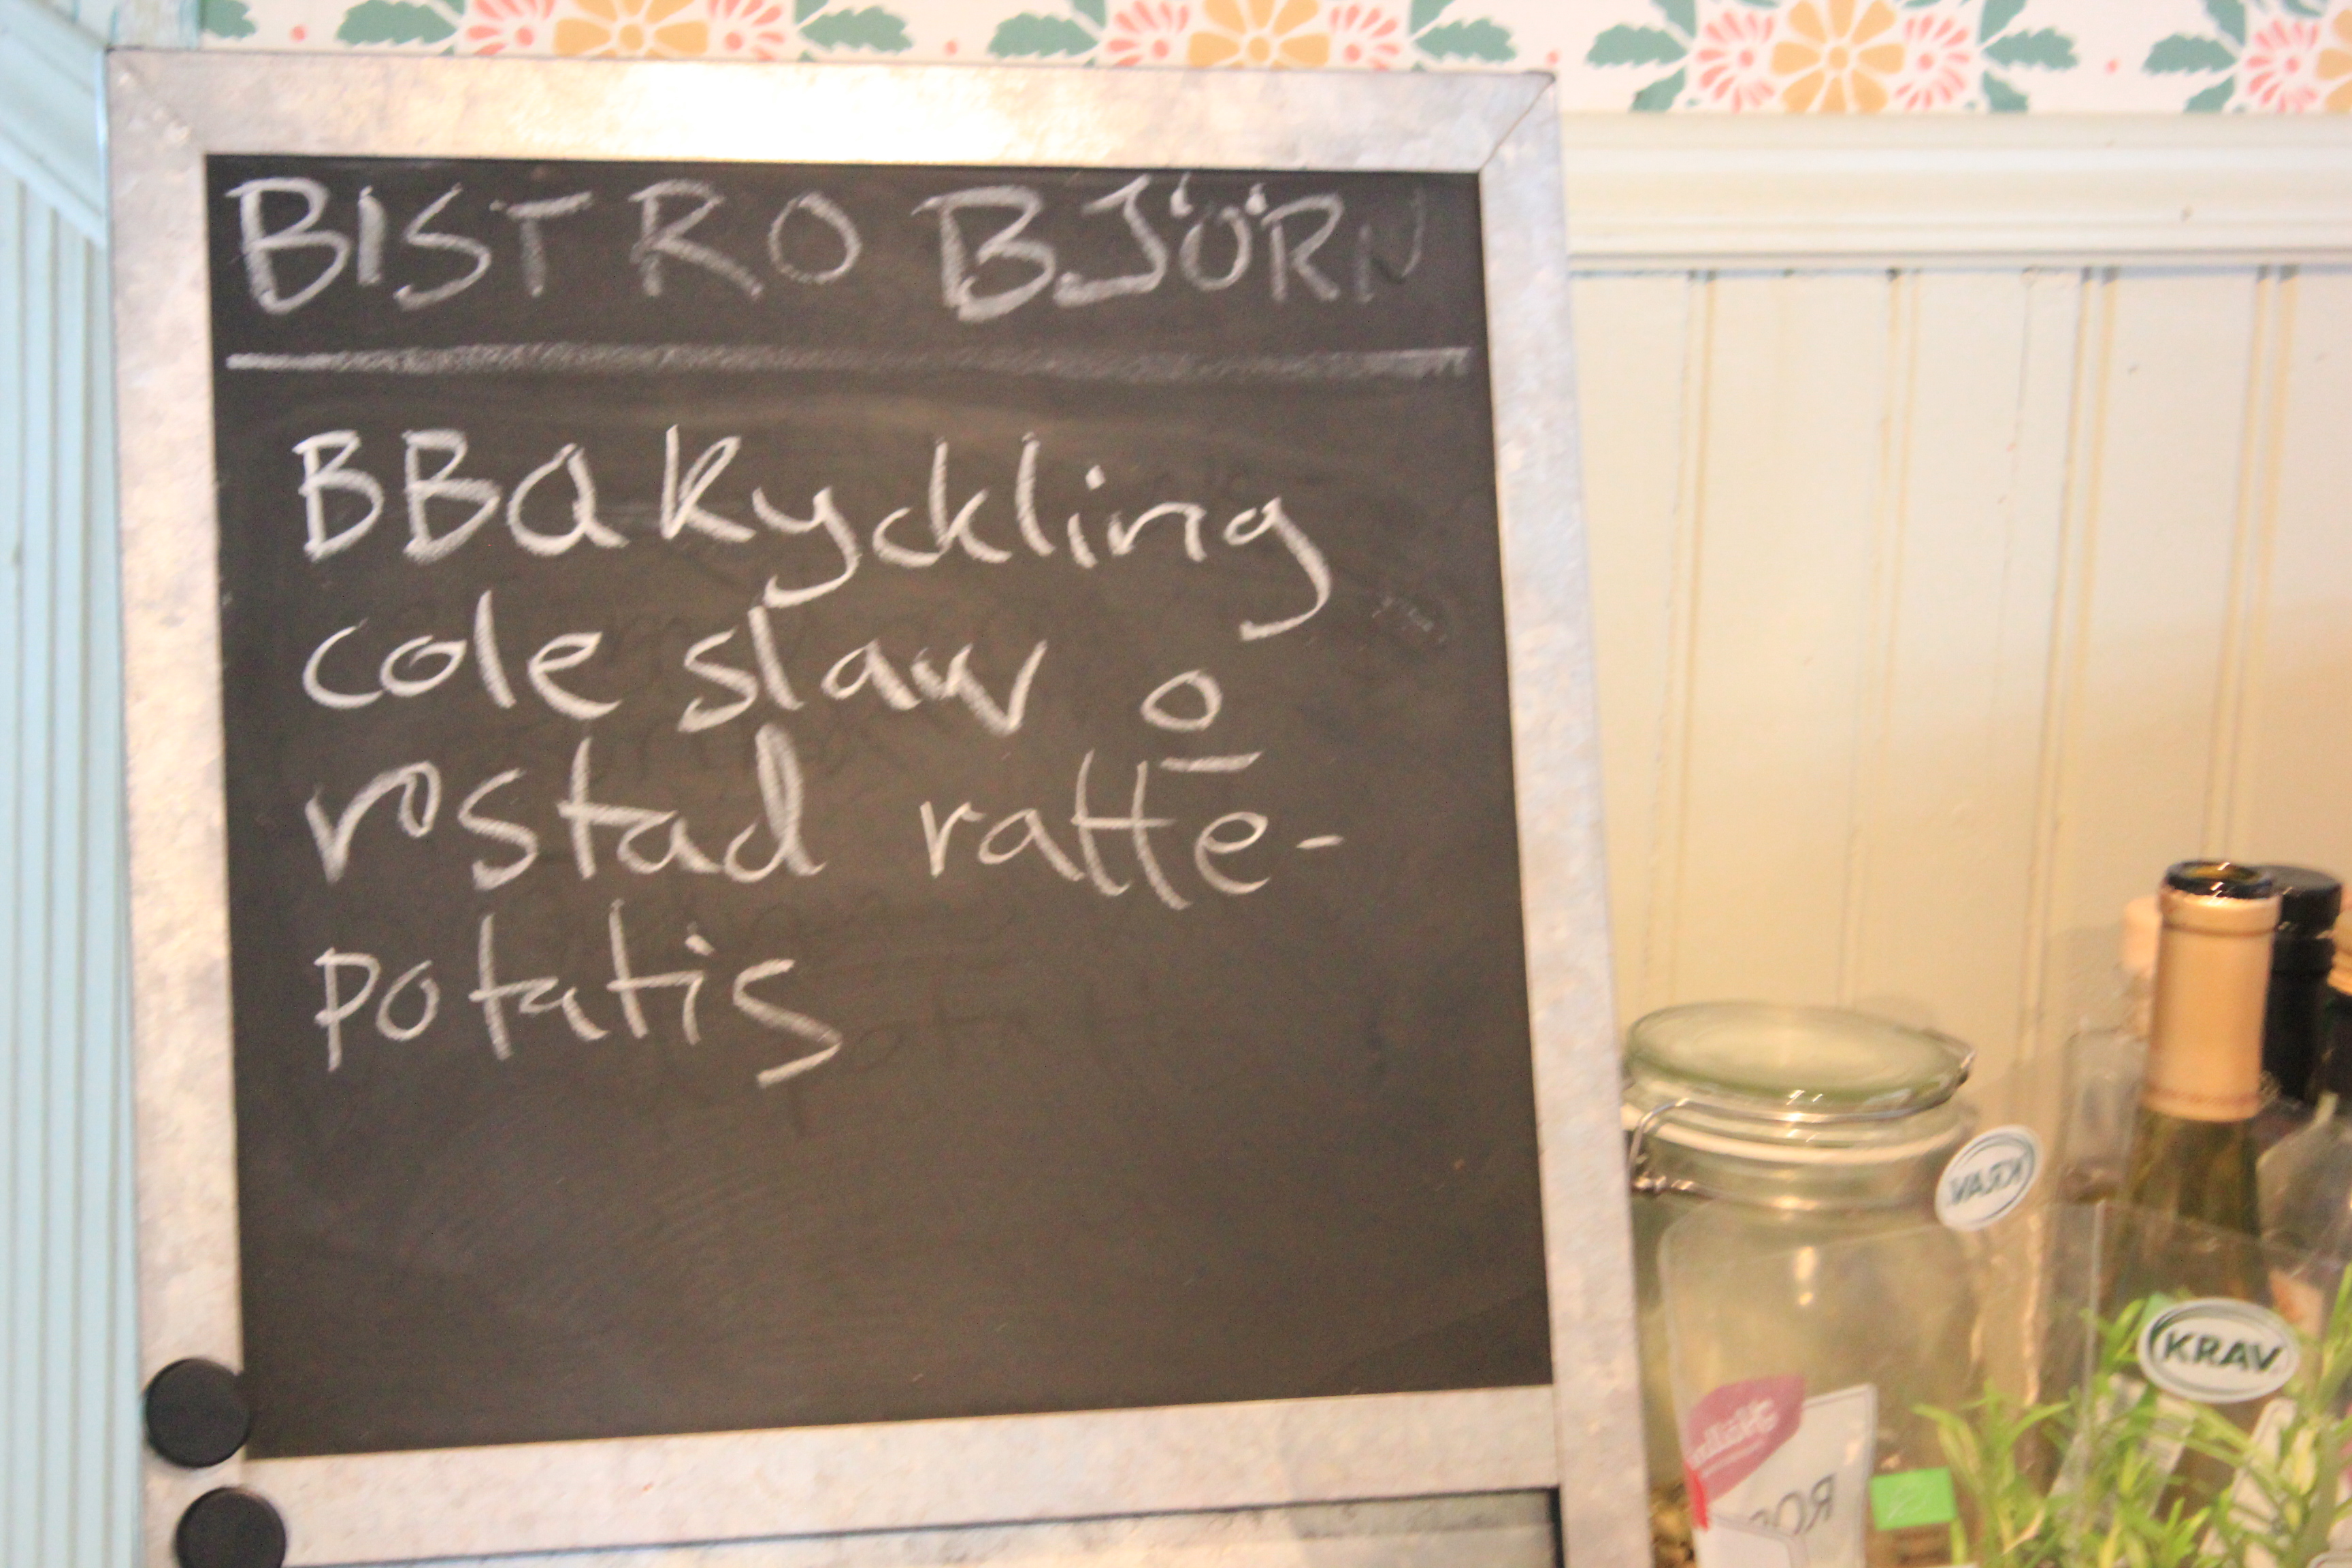 BISTRO BJÖRN
BBQ Kyckling
cole slaw o
rostad ratte-
potatis
KRAV
KRAV